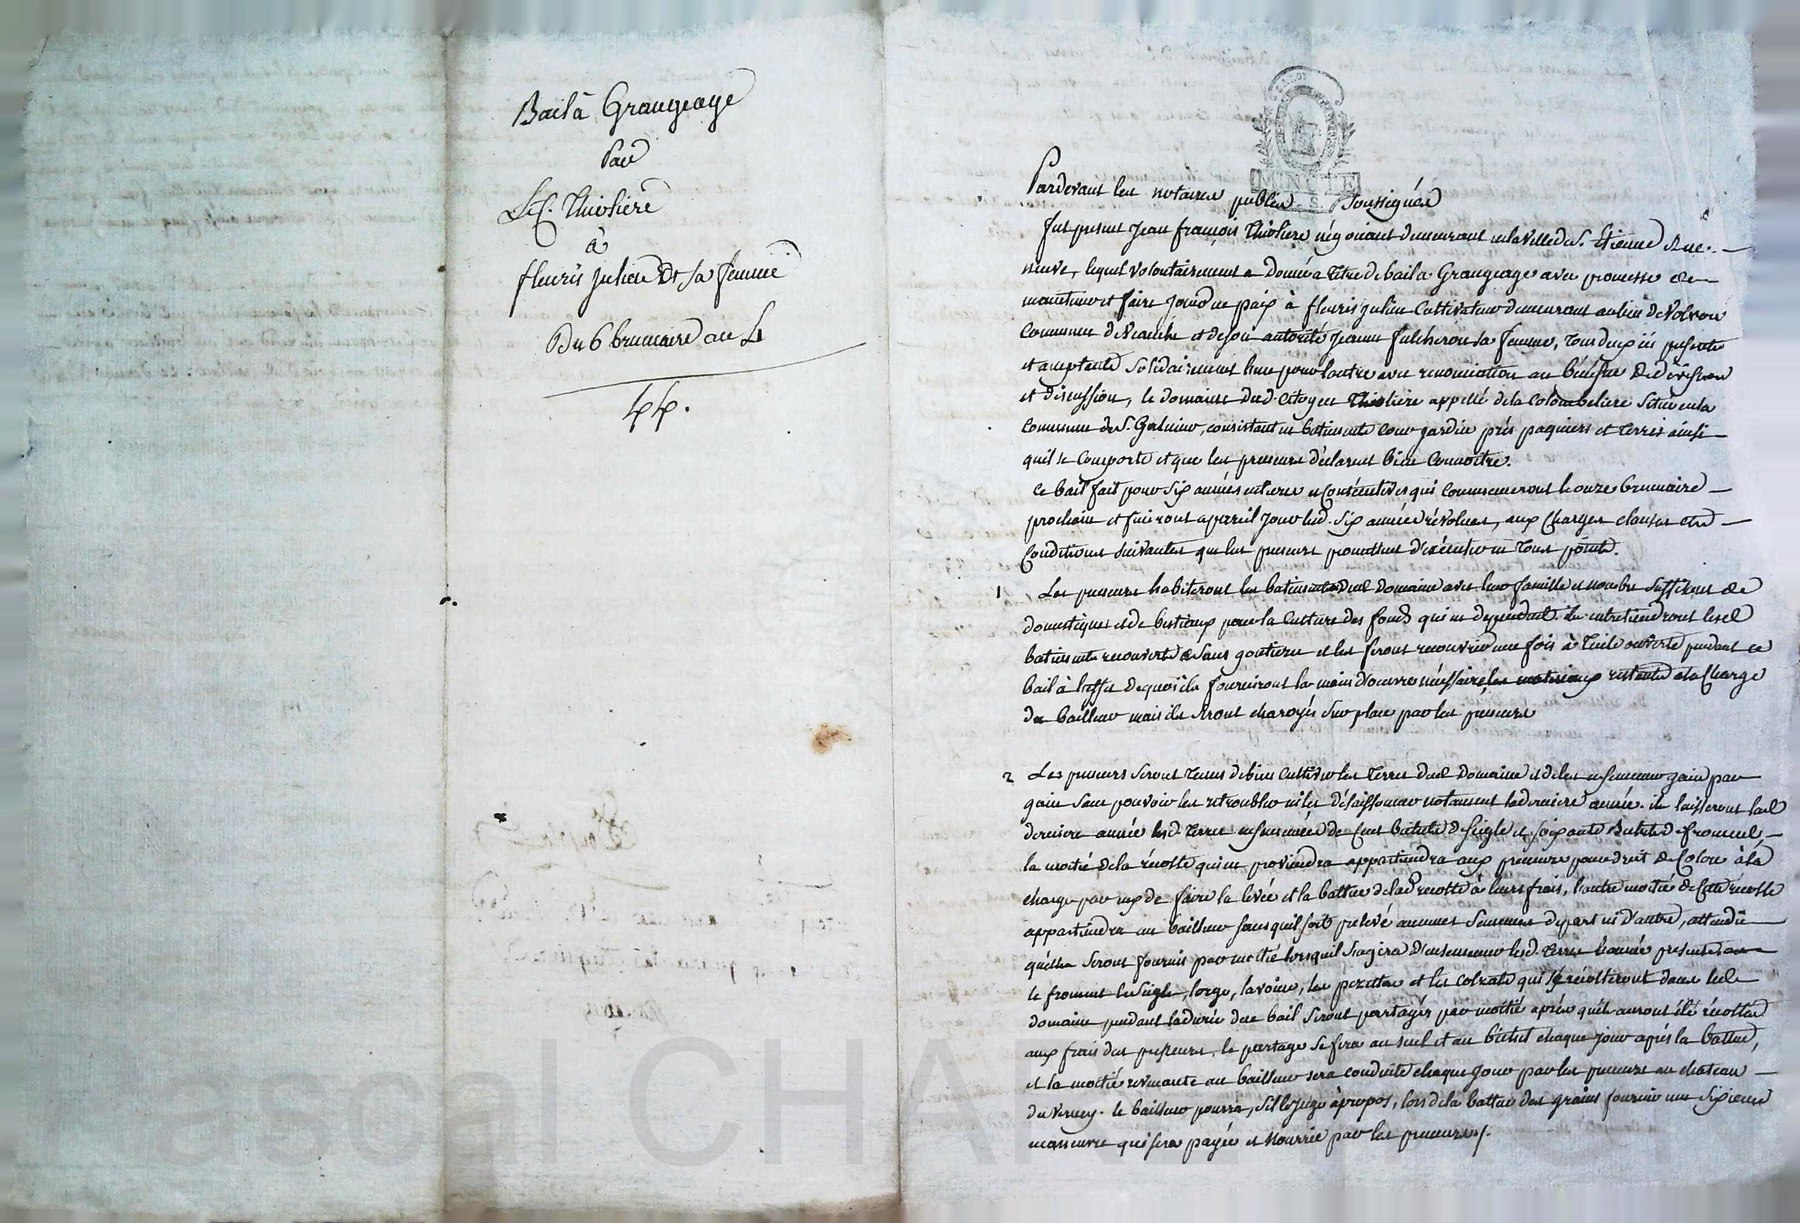 Bail à Grangeage
Par
Le C. Thioliere
à
fleuris julien Et sa femme
Du 6 brumaire an 4
44.
LA LOI
MINUTE
Pardevant les notaires publics Soussignés
fut present jean françois Thioliere négociant demeurant en la ville de St. Etienne rue
neuve, lequel volontairement a donné a titre de bail a Grangeage avec promesse de
maintenir et faire jouir en paix à fleuris julien Cultivateur demeurant au lieu de
Commune de et de son autorité jeanne fulcheron sa femme, tous deux ici presents
et acceptants Solidairement l'une pour l'autre avec renonciation au bénéfice de division
et discussion, le domaine dud. Citoyen Thioliere appellé de la Colombeliere Situé en la
Commune de St. Galmier, consistant en batiments cour jardin prés paquiers et terres ainsi
qu'il se Comporte et que les preneurs déclarent bien Connoitre.
Ce bail fait pour Six années entieres et Consécutives qui Commenceront le onze brumaire
prochain et finiront a pareil jour lesd. Six années révolues, aux Charges clauses et
Conditions Suivantes que les preneurs promettent d'exécuter en tous points.
1 Les preneurs habiteront les batiments dud domaine avec leur famille et nombre Suffisant de
domestiques et de bestiaux pour la Culture des fonds qui en dependent. ils entretiendront lesd
batiments recouverts & Sans goutiere et les feront recouvrir une fois à tuile ouverte pendant ce
bail à l'effet de quoi ils fourniront la main d'oeuvre nécessaire, les materiaux restants a la Charge
du bailleur mais ils Seront charoyés Sur place par les preneurs
2 Les preneurs Seront tenus de bien Cultiver les terres dud Domaine et de les ensemencer gain par
gain Sans pouvoir les retroubler ni les désaisonner notament la derniere année. ils laisseront lad
derniere année lesd. terres ensemencées de Cent bichets de Seigle et Soixante Bichets de froment
la moitié de la récolte qui en proviendra appartiendra aux preneurs pour droit de Colon à la
charge par eux de faire la levée et la battue de lad récolte à leurs frais, l'autre moitié de cette récolte
appartiendra au bailleur Sans qu'il soit prelevé aucunes Semences de part ni d'autre, attendu
qu'elles Seront fournies par moitié lorsqu'il S'agira d'ensemencer lesd. terres
le froment le Seigle, l'orge, l'avoine, les pezettes et les colzats qui Se récolteront dans led
domaine pendant la durée du bail Seront partagés par moitié après qu'ils auront été récoltés
aux frais des preneurs. le partage Se fera au Seuil et au bichet chaque jour après la battue,
et la moitié revenante au bailleur Sera conduite chaque jour par les preneurs au chateau
du Verney. le bailleur pourra, S'il le juge à propos, lors de la battue des grains fournir une Sixieme
manoeuvre qui Sera payée et Nourrie par les preneurs.